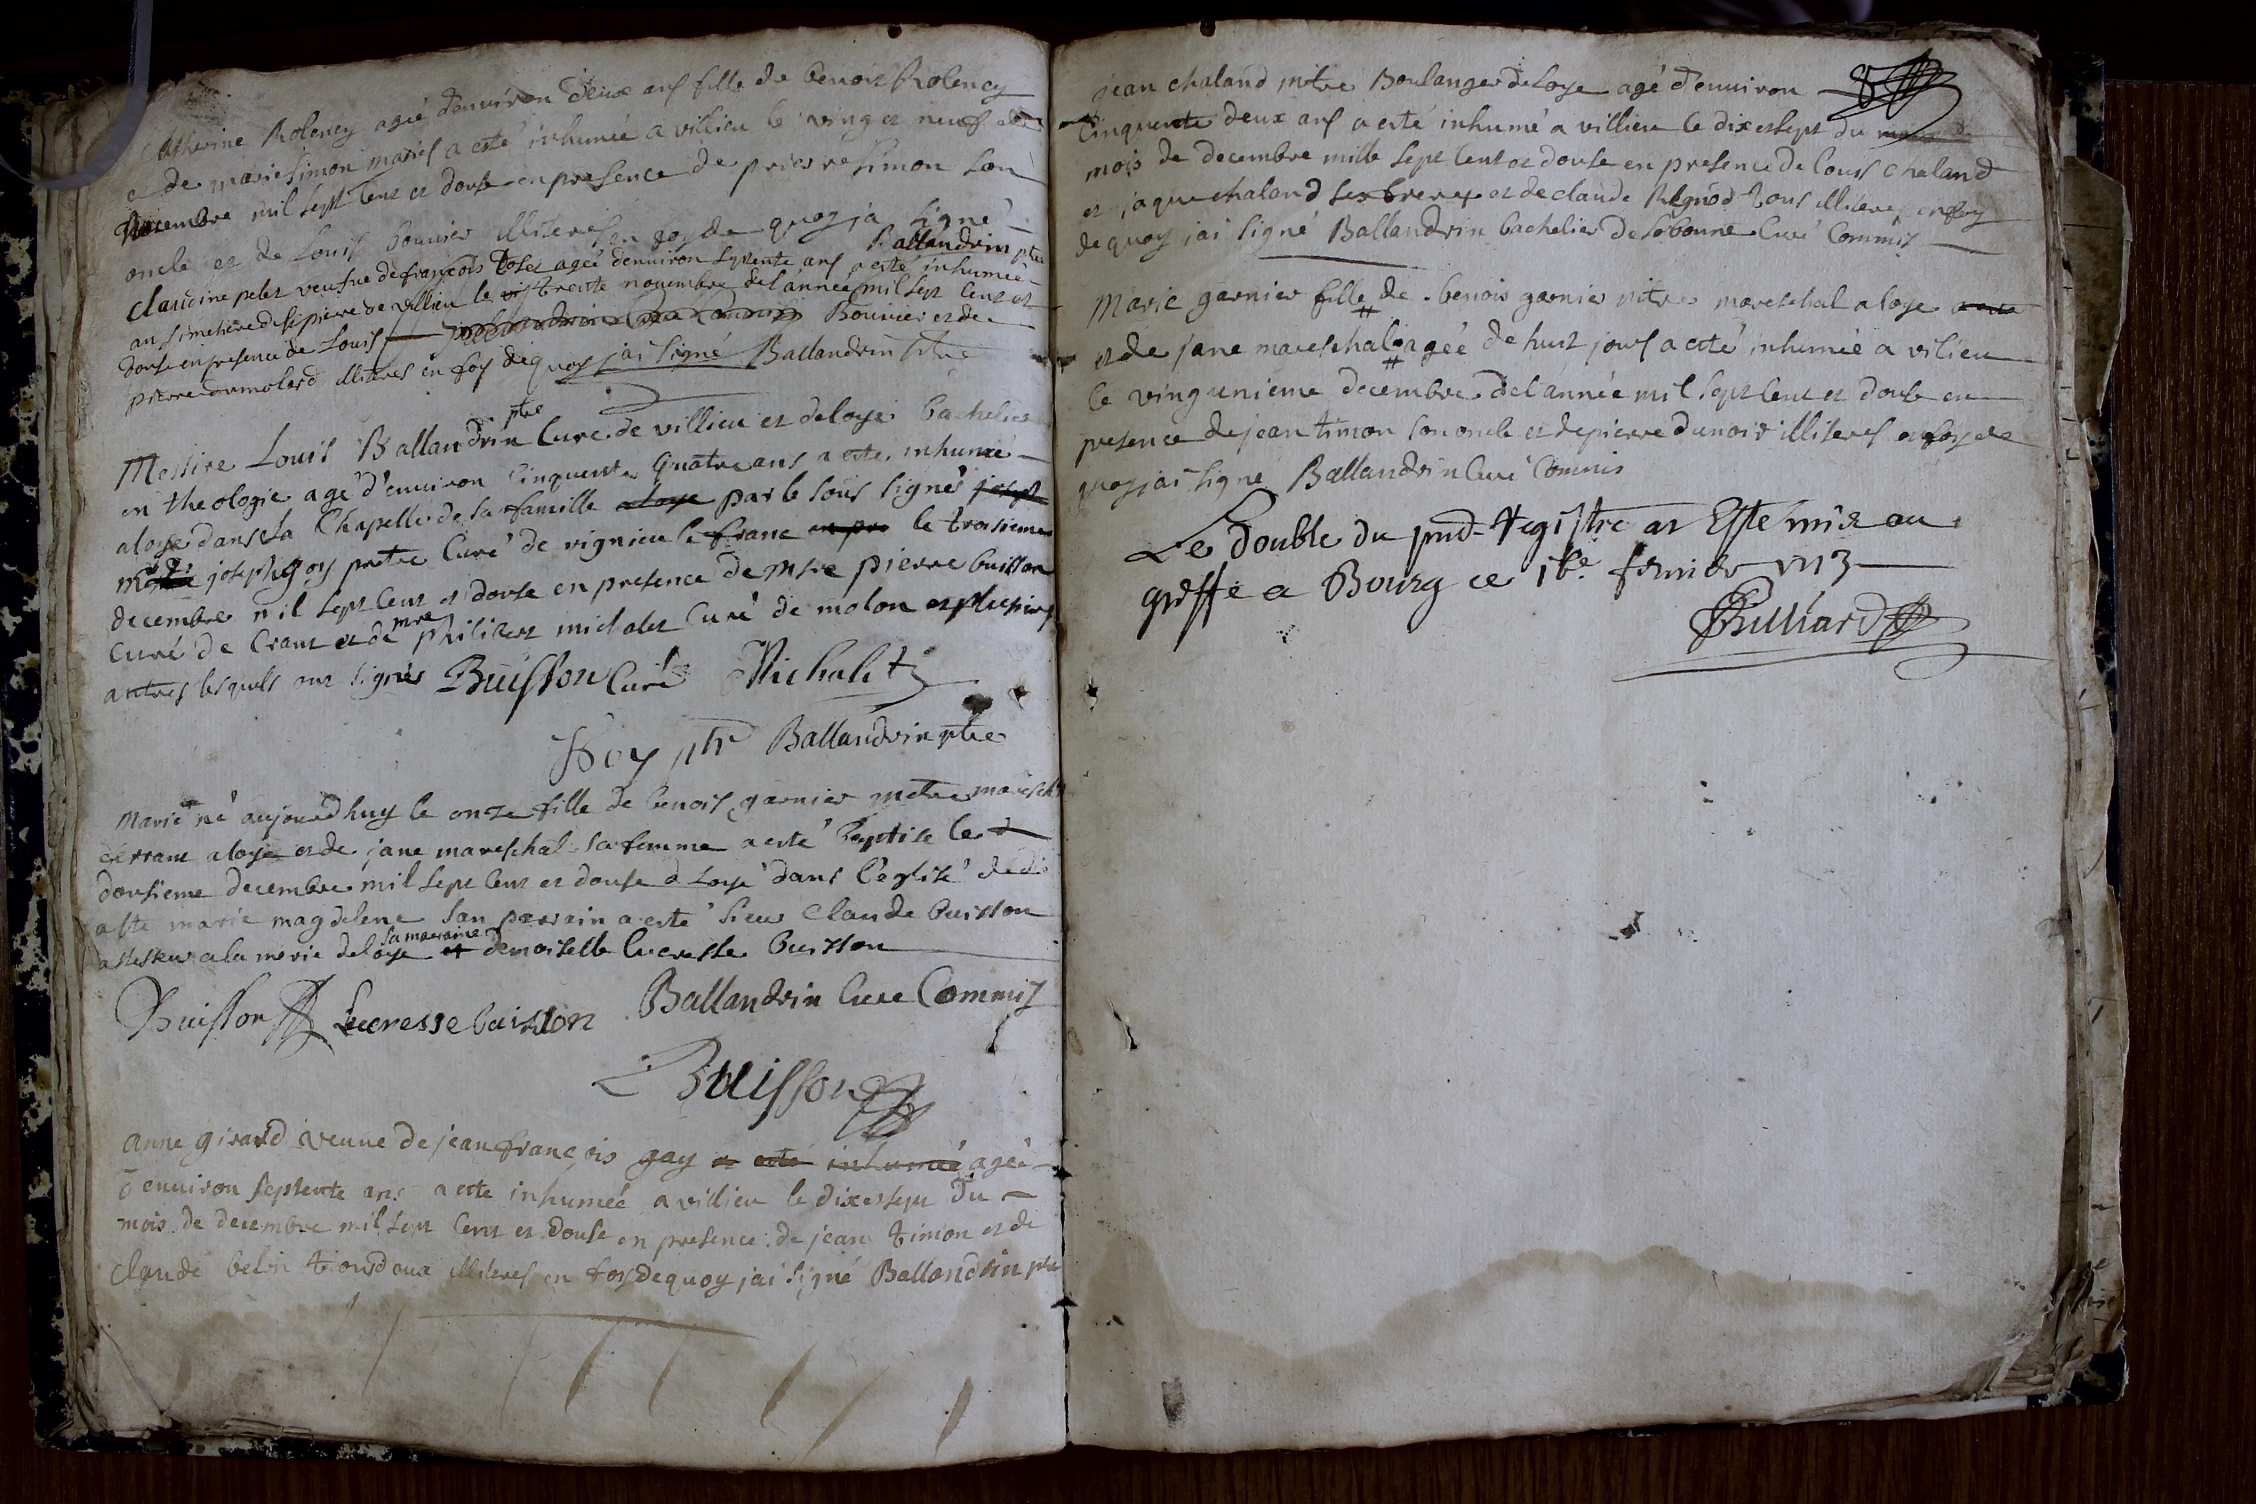 Catherine Rolency agée denviron deux ans fille de benoit Rolency
et de marie simon mariés a esté inhumée a villieu le vingt neuf
decembre mil sept cent et douse en presence de pierre simon son
oncle et de Louis bouvier illiterés en foy de quoy ja signé
Ballandrin ptre
claudine pelet veufue de françois agée denviron septente ans a esté inhumée
au simetiere de st pierre de villieu le trente novembre de l'année mil sept cent et
douse en presence de Louis Bouvier et de
pierre dumolard illiteres en foy de quoy jai signé Ballandrin ptre
Messire Louis Ballandrin ptre curé de villieu et de loye bachelier
en theologie agé d'environ cinquente quatre ans a esté inhumé
a loye dans la Chapelle de sa famille par le sous signé
joseph goy pretre Curé de vignieu le franc le troisieme
decembre mil sept cent et douse en presence de msre pierre buisson
Curé de Crans et de mre philibert michalet Curé de molon et plusieurs
autres lesquels ont signés Buisson Curé Michalet
Goy ptr Ballandrin ptre
Marie né aujourdhuy le onze fille de benoit garnier metre mareschal
ferrant a loye et de jane mareschal sa femme a esté baptisé le
dousieme decembre mil sept cent et douse a Loye dans l'eglise
a ste marie magdelene son parrain a esté sieur Claude buisson
assesseur a la merie de loye sa marraine demoiselle lucresse buisson
Buisson Lucresse buisson Ballandrin Curé Commis
Buisson
anne girard veuve de jean françois gay a esté inhumée agée
d'environ septente ans a esté inhumée a villieu le dix et sept du
mois de decembre mil sept cent et douse en presence de jean timon et de
claude belin tous deux illiterés en foy de quoy jai signé Ballandrin ptre
jean chaland mtre Boulanger de Loye agé d'environ
Cinquente deux ans a esté inhumé a villieu le dix et sept du
mois de decembre mille sept cent et douse en presence de Louis chaland
et jaque chaland ses freres et de claude Regnod tous illiteres en foy
de quoy jai signé Ballandrin bachelier de sobonne Curé Commis
Marie garnier fille de benois garnier mtre mareschal a loye
et de jane mareschal agée de huit jours a esté inhumée a vilieu
le vingunieme decembre de l'année mil sept cent et douse en
presence de jean timon son oncle et de pierre dunoir illiterés en foy de
quoy jai signé Ballandrin Curé Commis
Le double du pnd Registre at Esté mis au
greffe a Bourg ce 16e fevrier 1713